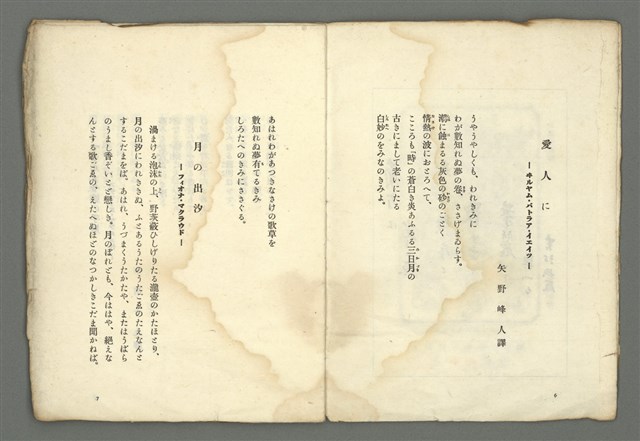 愛人に
―ヰルヤム・バトラア・イエイツ―
矢野峰人譯
うやうやしくも、われきみに
わが數知れぬ夢の卷、ささげまゐらす。
潮に蝕まるる灰色の砂のごとく
情熱の波におとろへて、
こころも「時」の蒼白き炎あふるる三日月の
古きにまして老いにたる
白妙のをみなのきみよ。
6
あはれわがあつきなさけの歌草を
數知れぬ夢有てるきみ
しろたへのきみにささぐる。
月の出汐
―フィオナ・マクラウド―
渦まける泡沫の上、野茨蔽ひしげりたる瀧壺のかたほとり、
月の出汐にわれききぬ、ふとあるうたのうたごゑのたえなんと
するこだまをば、あはれ、うづまくうたかたや、またはうばら
のうまし香ぞいとど戀しき。月のぼれども、今ははや、絕えな
んとする歌ごゑの、えたへぬほどのなつかしきこだま聞かねば。
7